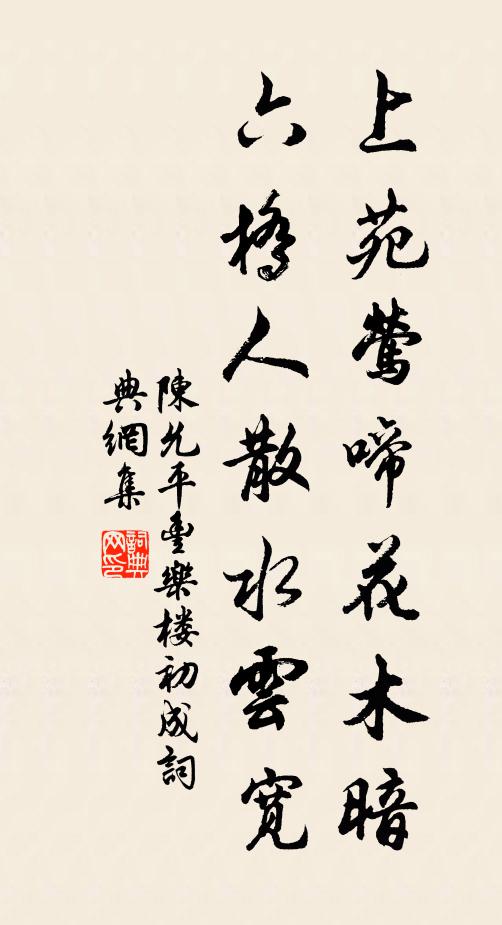 上苑鶯啼花木暗
六橋人散水雲寬
陳允平豐樂楼初成詞
典網集
詞典
网印